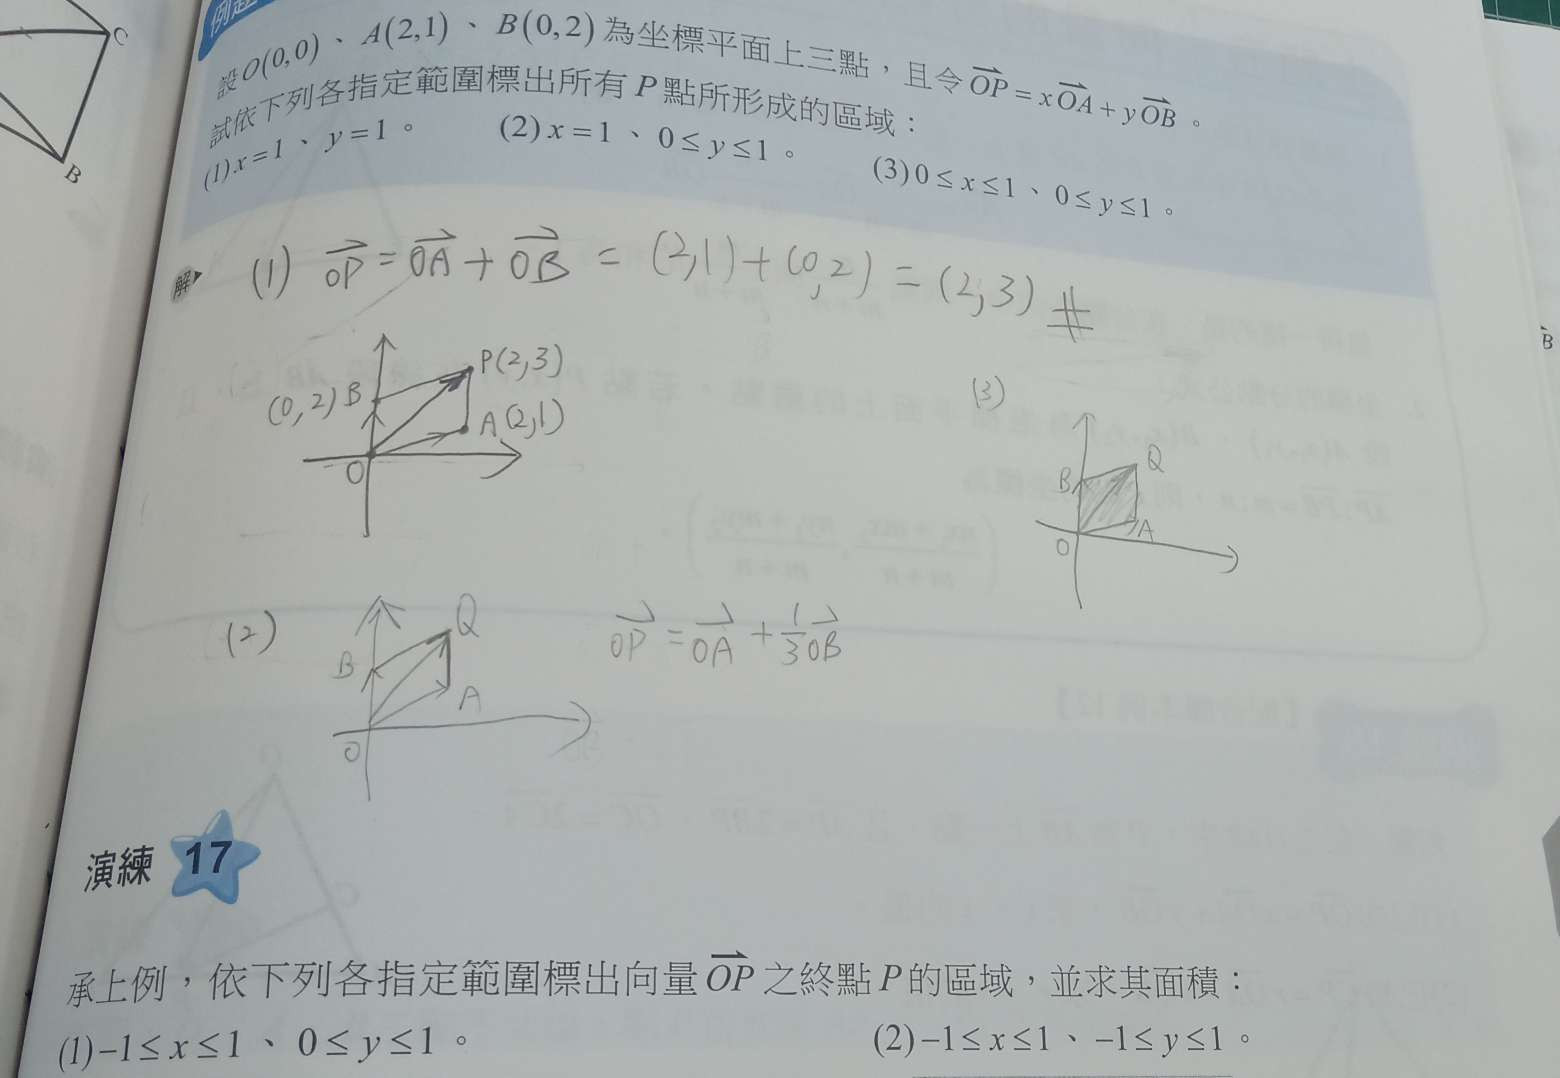 C
B
例題
設O(0,0)、A(2,1)、B(0,2)為坐標平面上三點，且令$\overrightarrow{OP}=x\overrightarrow{OA}+y\overrightarrow{OB}$。
試依下列各指定範圍標出所有P點所形成的區域：
(1)x=1、y=1。 (2)x=1、0≤y≤1。 (3)0≤x≤1、0≤y≤1。
解 (1) $\overrightarrow{OP}=\overrightarrow{OA}+\overrightarrow{OB}$ = (2,1)+(0,2) = (2,3) #
P(2,3)
(0,2) B
A(2,1)
O
(3)
B Q
A
O
(2)
Q
B
A
O
$\overrightarrow{OP}=\overrightarrow{OA}+\frac{1}{3}\overrightarrow{OB}$
B
演練 17
承上例，依下列各指定範圍標出向量$\overrightarrow{OP}$之終點P的區域，並求其面積：
(1)−1≤x≤1、0≤y≤1。 (2)−1≤x≤1、−1≤y≤1。